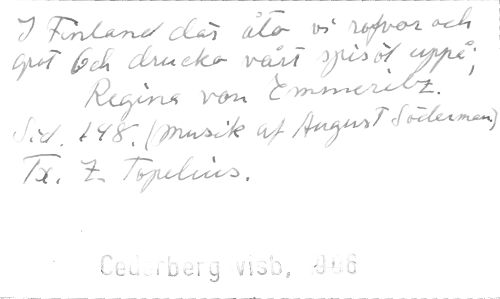 I Finland där åto vi rofvor och
gröt och drucko vårt spisöl uppå;
Regina von Emmeritz.
Sid. 148. (Musik af August Söderman)
Tx. Z. Topelius.
Cederberg visb,